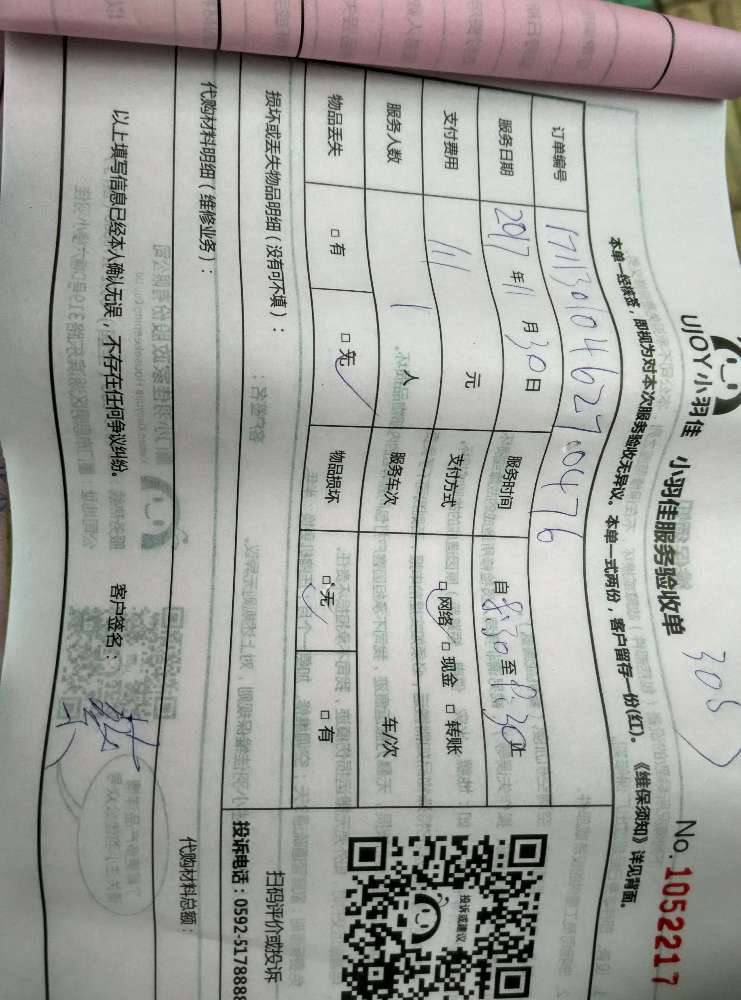 UJOY小羽佳 小羽佳服务验收单 No.1052217
305
本单一经接签，即视为对本次服务验收无异议。本单一式两份，客户留存一份(红)。《维保须知》详见背面。
订单编号 171130104627 0476
服务日期 2017年11月30日 服务时间 自8:30至
支付费用 111 元 支付方式 □网络 □现金 □转账
服务人数 1 人 服务车次 车/次
物品丢失 □有 □无 物品损坏 □无 □有
投诉或建议
扫码评价或投诉
损坏或丢失物品明细（没有可不填）：
投诉电话：0592-5178888
代购材料明细（维修业务）：
代购材料总额：
以上填写信息已经本人确认无误，不存在任何争议纠纷。 客户签名：